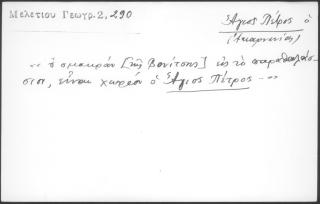 Μελετίου Γεωγρ. 2, 290
Ἅγιος Πέτρος ὁ
(Ἀκαρνανίας)
[τῆς Βονίτσης] εἰς τὸ παραθαλάσ-
σιον, εἶναι χωρίον ὁ Ἅγιος Πέτρος --»